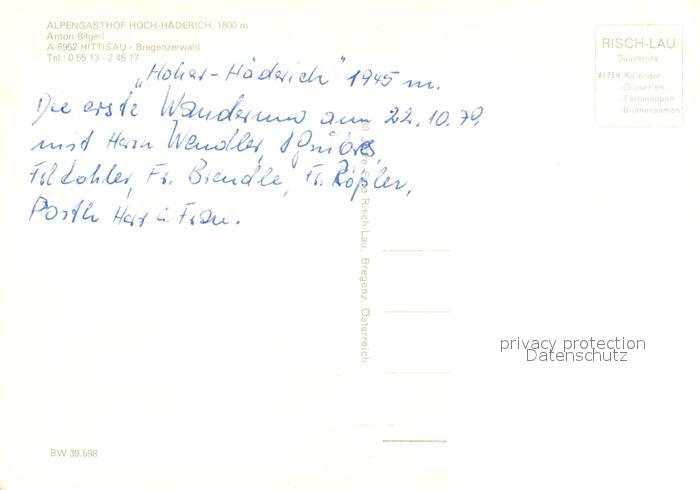 ALPENGASTHOF HOCH-HÄDERICH, 1600 m
Anton Bilgeri
A-6952 HITTISAU - Bregenzerwald
Tel.: 0 55 13 - 2 46 17
„Hoher-Häderich" 1945 m.
Die erste Wanderung am 22.10.79.
mit Herrn Wendler,
Frl. Kohler, Fr. Brendle, Fr. Röpler,
Herr u. Frau.
RISCH-LAU
Souvenirs:
ALPEN-Kalender
-Diaserien
-Farbmappen
-Blumensamen
Risch-Lau, Bregenz, Österreich
privacy protection
Datenschutz
BW 39.598